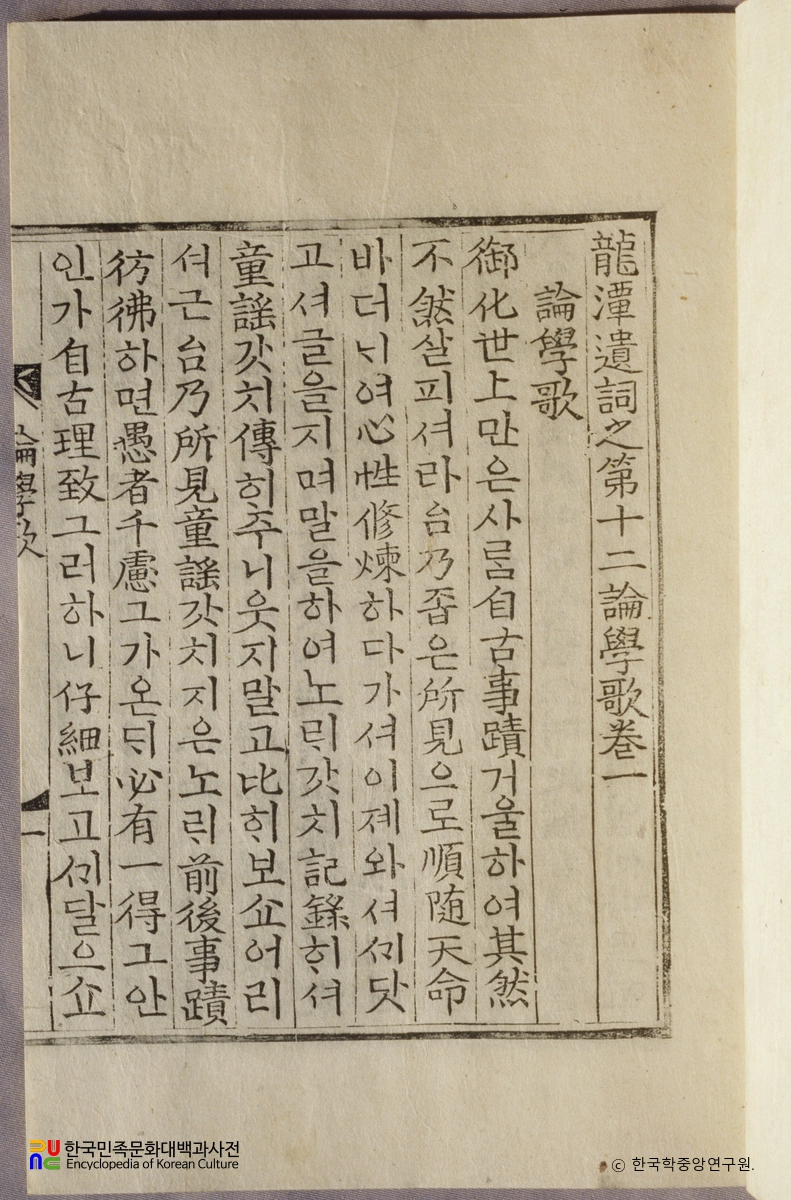 龍潭遺詞之第十二論學歌卷一
論學歌
御化世上만은사ᄅᆞᆷ自古事蹟거울하여其然
不然살피셔라台乃좁은所見으로順随天命
바더ᄂᆡ여心性修煉하다가셔이졔와셔ᄭᆡ닷
고셔글을지며말을하여노ᄅᆡ갓치記錄ᄒᆡ셔
童謠갓치傳히주니웃지말고比ᄒᆡ보쇼어리
셔근台乃所見童謠갓치지은노ᄅᆡ前後事蹟
彷彿하면愚者千慮그가온ᄃᆡ必有一得그안
인가自古理致그러하니仔細보고ᄭᆡ달으쇼
論學歌
一
한국민족문화대백과사전
Encyclopedia of Korean Culture
© 한국학중앙연구원.